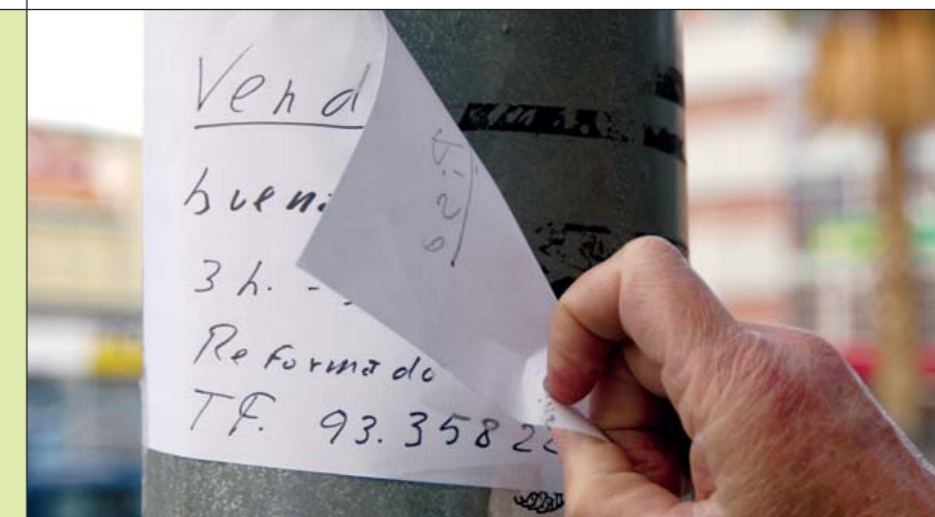 Vend
buen
3 h. -
Reformado
TF. 93.3582